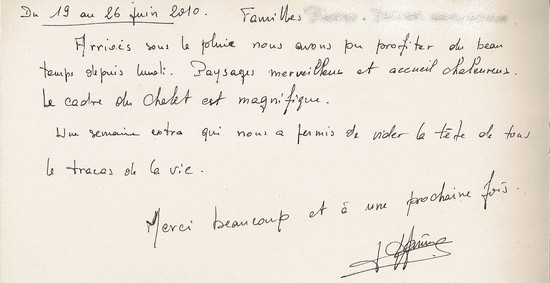 Du 19 au 26 juin 2010. Familles
Arrivés sous la pluie nous avons pu profiter du beau
temps depuis lundi. Paysages merveilleux et accueil chaleureux.
Le cadre du chalet est magnifique.
Une semaine extra qui nous a permis de vider la tête de tous
le tracas de la vie.
Merci beaucoup et à une prochaine fois.